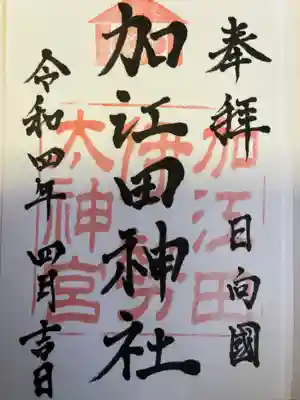 奉拝 日向國
加江田神社
令和四年 四月 吉日
加江田
伊勢
大神宮